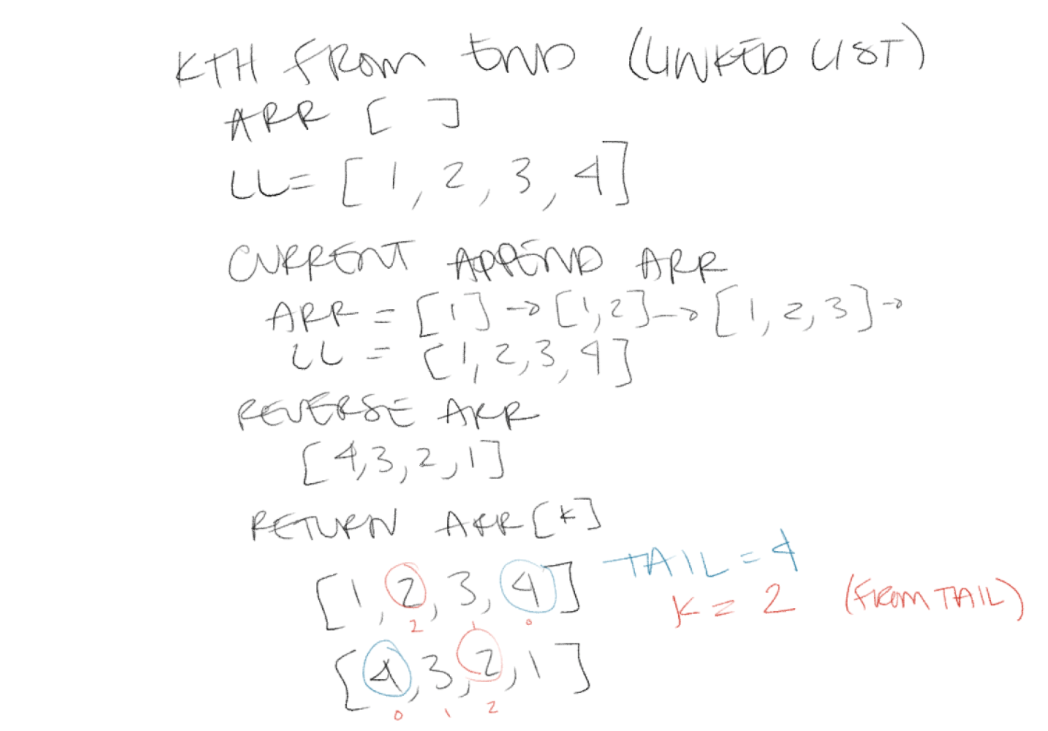 KTH FROM END (LINKED LIST)
ARR [ ]
LL= [ 1, 2, 3, 4]
CURRENT APPEND ARR
ARR = [1] → [1,2] → [1, 2, 3] →
LL = [1, 2, 3, 4]
REVERSE ARR
[4,3,2,1]
RETURN ARR[K]
TAIL = 4
[1, 2, 3, 4]
K = 2 (FROM TAIL)
2 1 0
[4, 3, 2, 1]
0 1 2